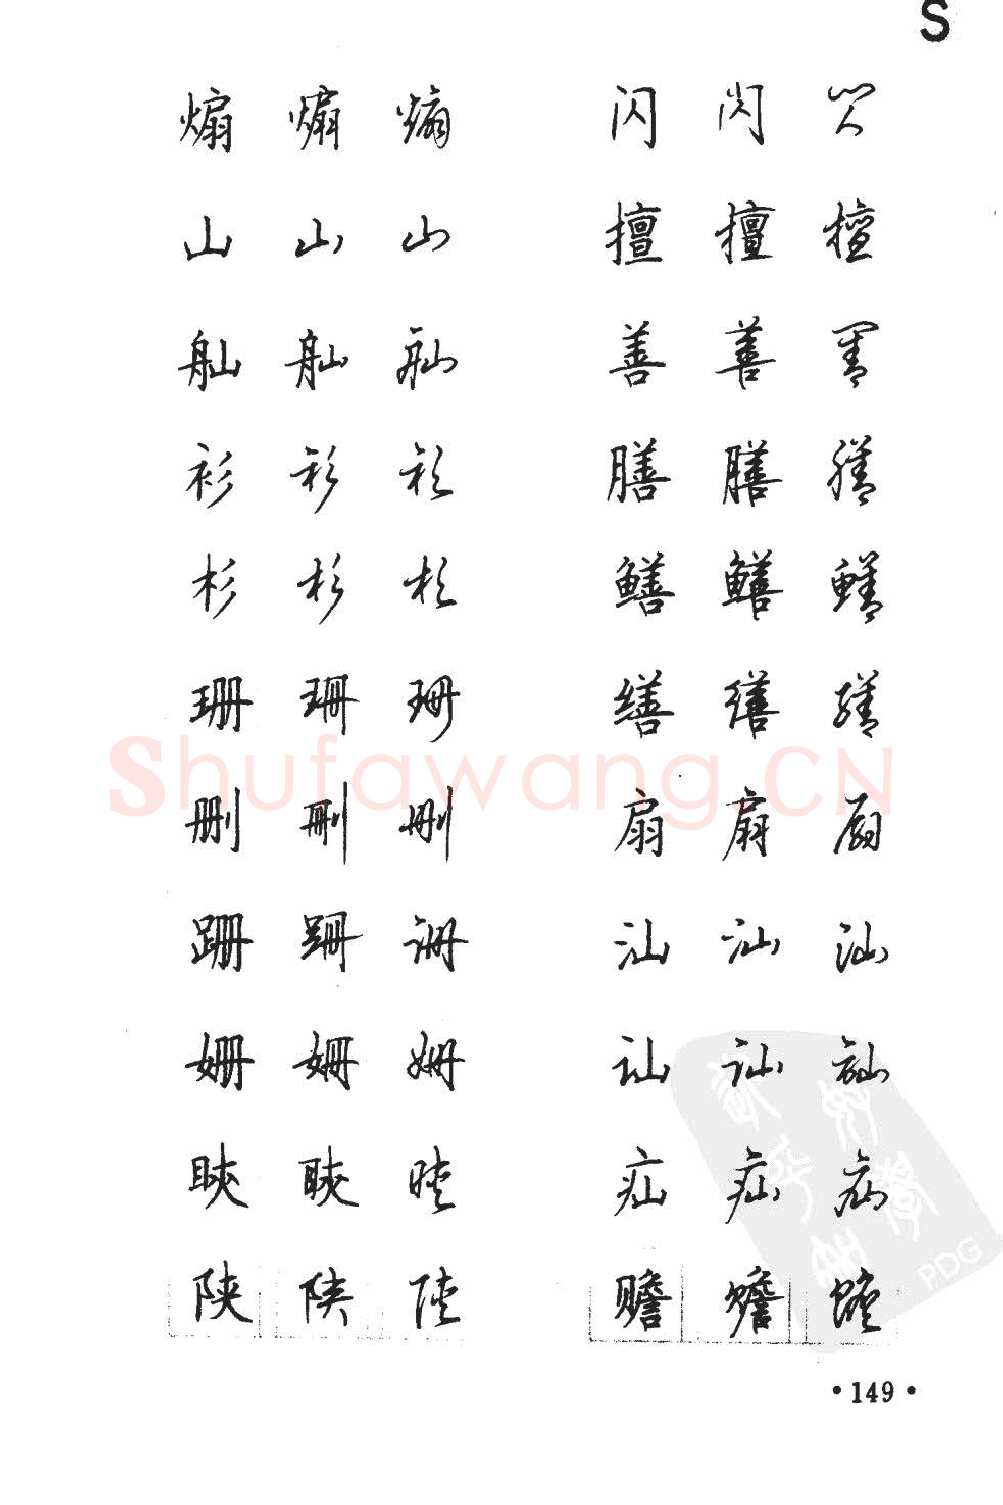 S
煽 煽 煽 闪 闪 闪
山 山 山 擅 擅 擅
舢 舢 舢 善 善 善
衫 衫 衫 膳 膳 膳
杉 杉 杉 鳝 鳝 鳝
珊 珊 珊 缮 缮 缮
删 删 删 扇 扇 扇
跚 跚 跚 汕 汕 汕
姗 姗 姗 讪 讪 讪
疝 疝 疝
陕 陕 陕 赡 赡 赡
Shufawang.CN
PDG
·149·